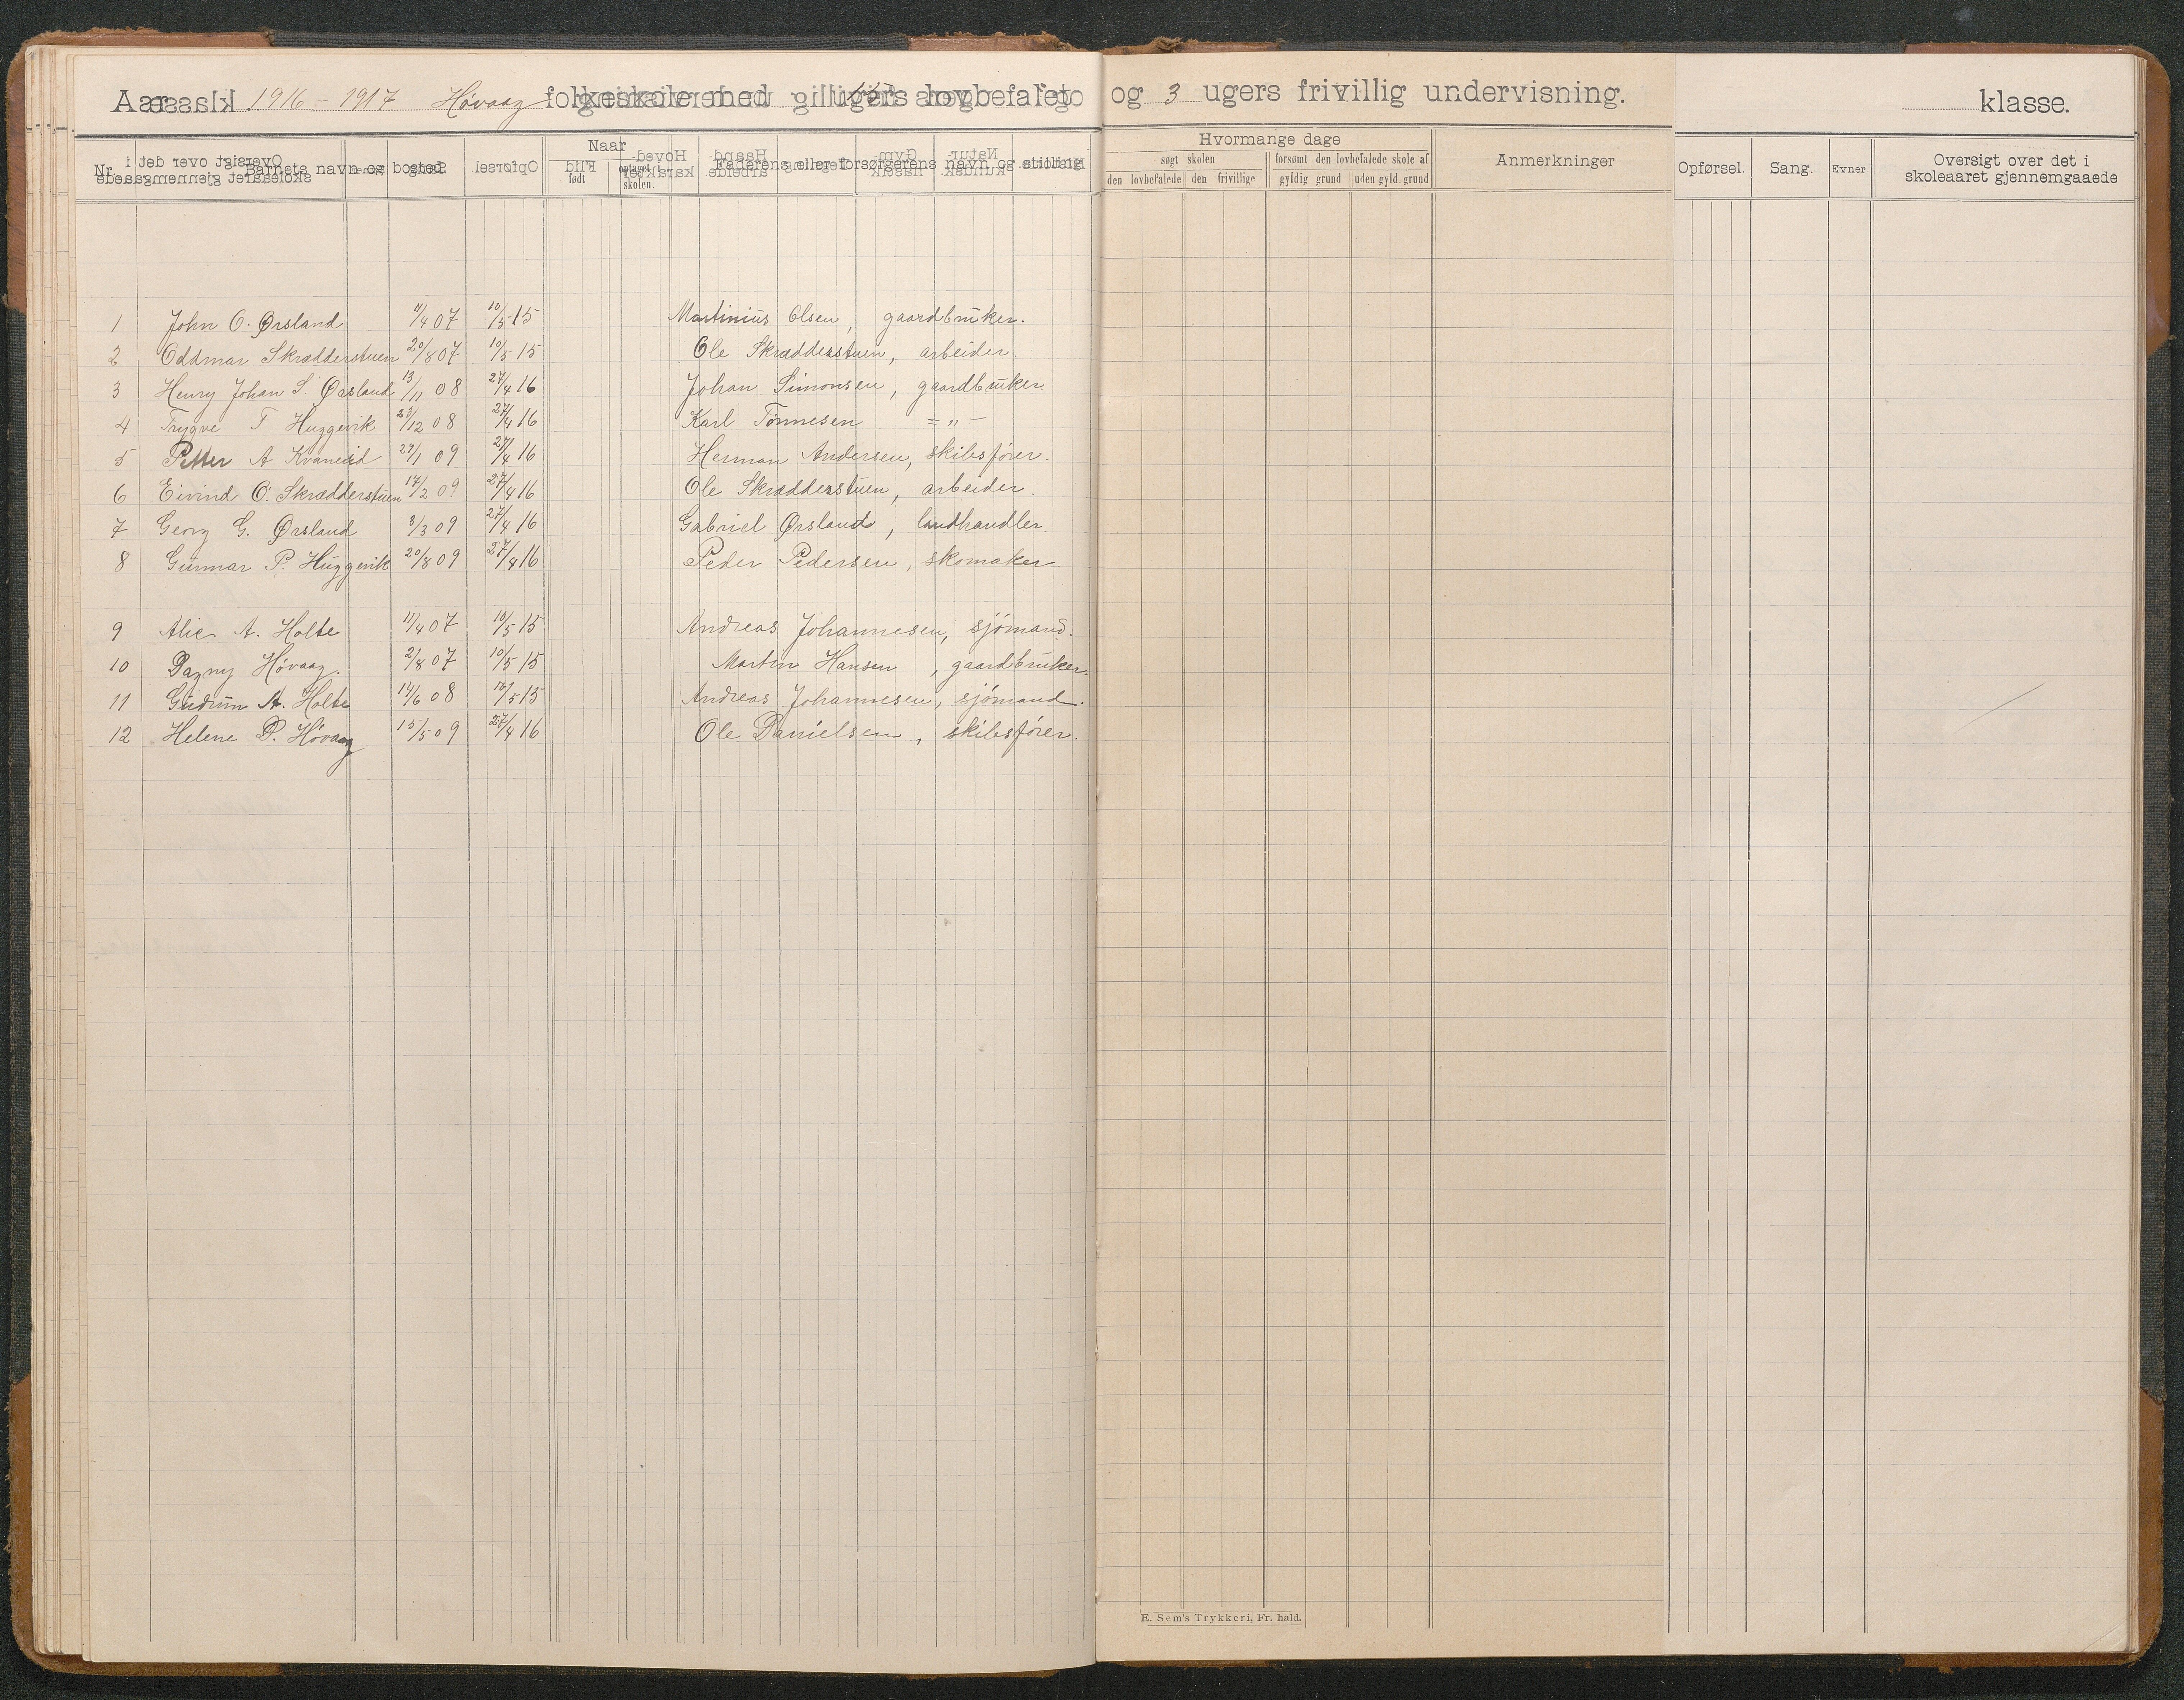 Aar 1916 - 1917 Høvaag folkeskole med ugers lovbefalet og 3 ugers frivillig undervisning. klasse.
Nr. Barnets navn og bosted Naar født optaget i skolen. Faderens eller forsørgerens navn og stilling Hvormange dage søgt skolen den lovbefalede den frivillige forsømt den lovbefalede skole af gyldig grund uden gyld. grund Anmerkninger Opførsel. Sang. Evner Oversigt over det i skoleaaret gjennemgaaede
1 John O. Ørsland 11/4 07 10/5 15 Martinius Olsen, gaardbruker.
2 Oddmar Skrædderstuen 20/8 07 10/5 15 Ole Skrædderstuen, arbeider.
3 Henry Johan S. Ørsland 13/11 08 27/4 16 Johan Simonsen, gaardbruker.
4 Trygve T Huggevik 23/12 08 27/4 16 Karl Tönnesen = " -
5 Petter A Kvaneid 29/1 09 27/4 16 Herman Andersen, skibsfører.
6 Eivind O. Skrædderstuen 17/2 09 27/4 16 Ole Skrædderstuen, arbeider.
7 Georg G. Ørsland 3/3 09 27/4 16 Gabriel Ørsland, landhandler.
8 Gunnar P. Huggevik 20/8 09 27/4 16 Peder Pedersen, skomaker.
9 Alie A. Holte 11/4 07 10/5 15 Andreas Johannesen, sjömand.
10 Dagny Høvaag. 2/8 07 10/5 15 Martin Hansen, gaardbruker.
11 Gudrun A. Holte 14/6 08 10/5 15 Andreas Johannesen, sjömand.
12 Helene D. Høvaag 15/5 09 27/4 16 Ole Danielsen, skibsfører.
E. Sem's Trykkeri, Fr. hald.